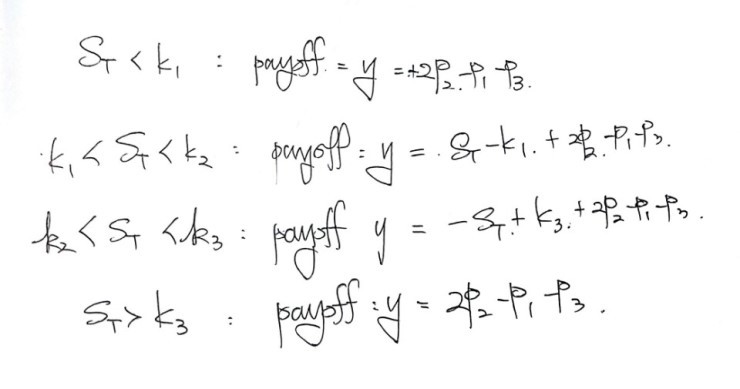 S_T < k_1 : payoff = y = +2P_2 - P_1 - P_3.
k_1 < S_T < k_2 : payoff : y = S_T - k_1. + 2P_2 - P_1 - P_3.
k_2 < S_T < k_3 : payoff y = -S_T + k_3. + 2P_2 - P_1 - P_3.
S_T > k_3 : payoff : y = 2P_2 - P_1 - P_3.